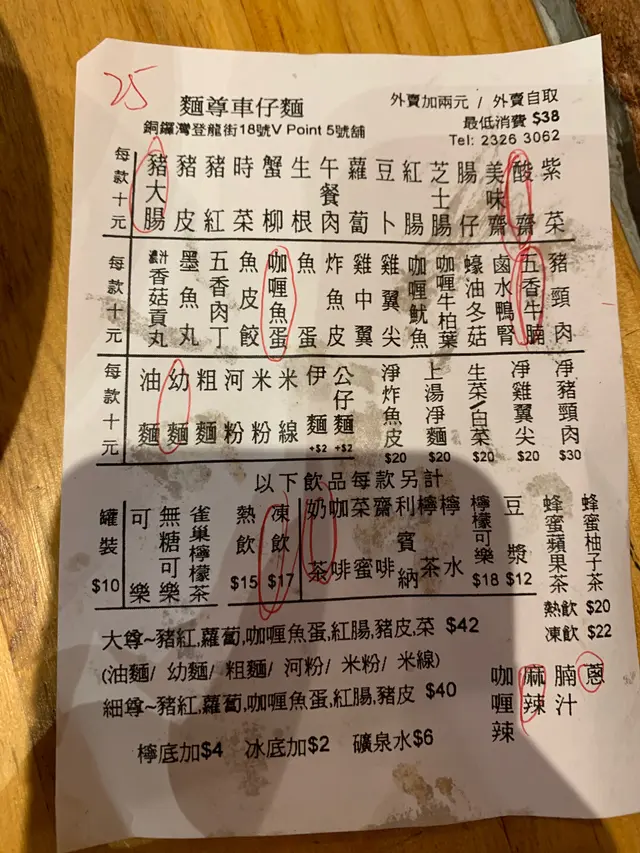 25
麵尊車仔麵
外賣加兩元 / 外賣自取
銅鑼灣登龍街18號V Point 5號舖
最低消費 $38
Tel: 2326 3062
每款十元
豬大腸
豬皮
豬紅
時菜
蟹柳
生根
午餐肉
蘿蔔
豆卜
紅腸
芝士腸
腸仔
美味齋
酸齋
紫菜
每款十元
濃汁香菇貢丸
墨魚丸
五香肉丁
魚皮餃
咖喱魚蛋
魚蛋
炸魚皮
雞中翼
雞翼尖
咖喱魷魚
咖喱牛柏葉
蠔油冬菇
鹵水鴨腎
五香牛腩
豬頸肉
每款十元
油麵
幼麵
粗麵
河粉
米粉
米線
伊麵 +$2
公仔麵 +$2
淨炸魚皮 $20
上湯淨麵 $20
生菜/白菜 $20
淨雞翼尖 $20
淨豬頸肉 $30
以下飲品每款另計
罐裝 $10
可樂
無糖可樂
雀巢檸檬茶
熱飲 $15
凍飲 $17
奶茶
咖啡
菜蜜
齋啡
利賓納
檸茶
檸水
檸檬可樂 $18
豆漿 $12
蜂蜜蘋果茶
蜂蜜柚子茶
熱飲 $20
凍飲 $22
大尊~豬紅,蘿蔔,咖喱魚蛋,紅腸,豬皮,菜 $42
(油麵/ 幼麵/ 粗麵/ 河粉/ 米粉/ 米線)
細尊~豬紅,蘿蔔,咖喱魚蛋,紅腸,豬皮 $40
咖喱辣
麻辣
腩汁
蔥
檸底加$4 冰底加$2 礦泉水$6